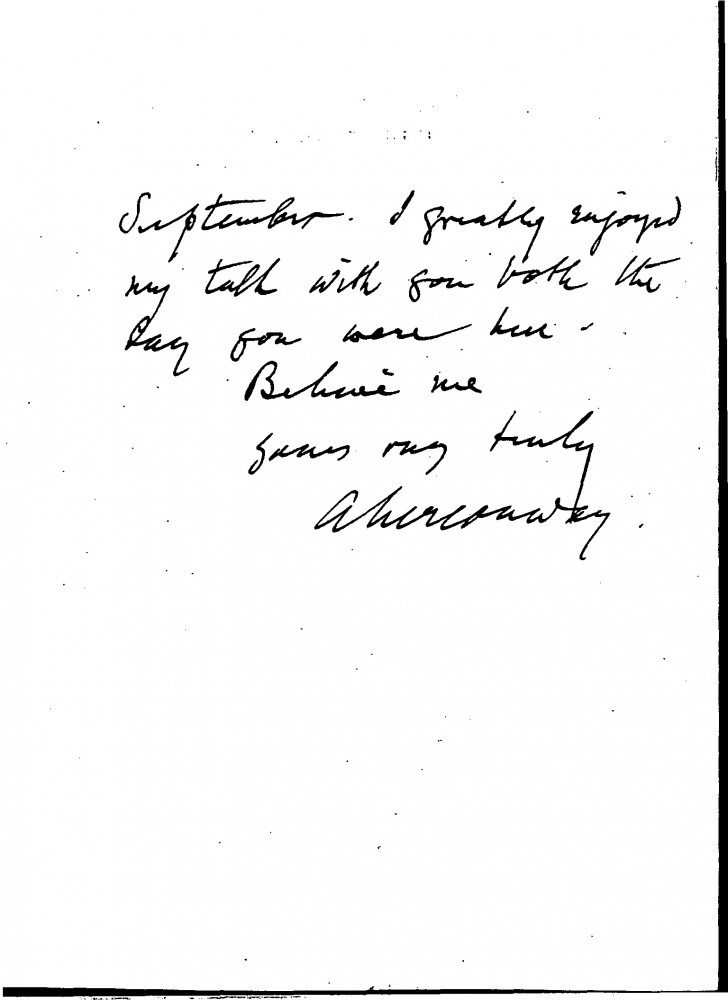 September. I greatly enjoyed
my talk with you both the
day you were here.
Believe me
yours very truly
Aberconway.